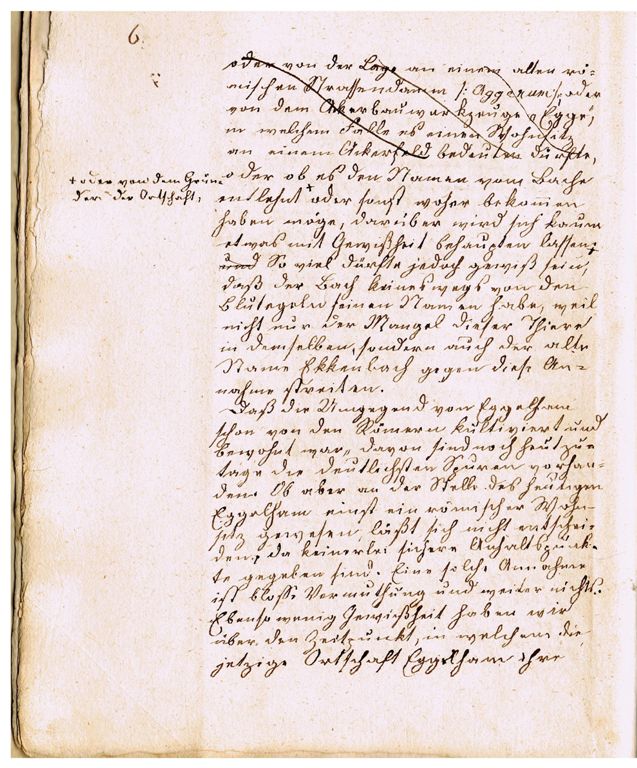 6.
oder von der Lage an einem alten rö=
mischen Strassendamm /: Aggerum :/, oder
von dem Ackerbauwerkzeuge „Egge",
in welchem Falle es einen Wohnsitz
an einem Ackerfeld bedeuten dürfte,
oder ob es den Namen vom Bache
+ oder von dem Grün=
der der Ortschaft,
entlehnt + oder sonst woher bekomen
haben möge, darüber wird sich kaum
etwas mit Gewißheit behaupten lassen;
und So viel dürfte jedoch gewiß sein,
daß der Bach keineswegs von den
Blutegeln seinen Namen habe, weil
nicht nur der Mangel dieser Thiere
in demselben, sondern auch der alte
Name Ekkenbach gegen diese An=
nahme streiten.
Daß die Umgegend von Eggelham
schon von den Römern kultiviert und
bewohnt war, davon sind noch heut zu
tage die deutlichsten Spuren vorhan=
den. Ob aber an der Stelle des heutigen
Eggelham einst ein römischer Wohn=
sitz gewesen, läßt sich nicht entschei=
den, da keinerlei sichere Anhaltspunk=
te gegeben sind. Eine solche Annahme
ist bloße Vermuthung und weiter nichts.
Ebenso wenig Gewißheit haben wir
über den Zeitpunkt, in welchem die
jetzige Ortschaft Eggelham ihre